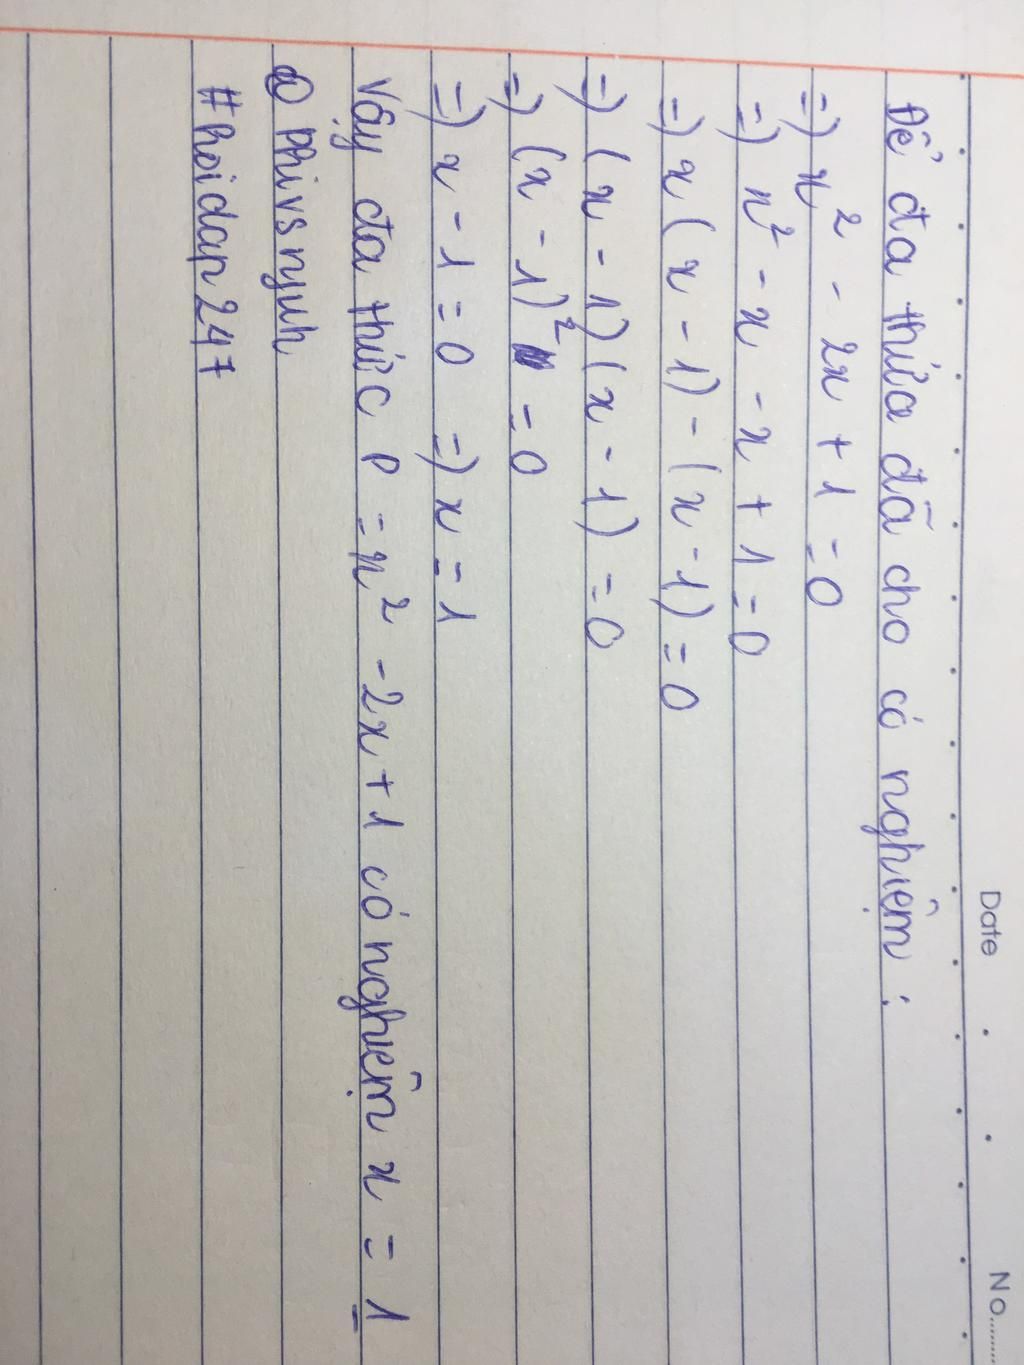 Date
No.........
Để đa thứa đã cho có nghiệm :
=) x² - 2x + 1 = 0
=) x² - x - x + 1 = 0
=) x ( x - 1) - ( x - 1) = 0
=) ( x - 1) ( x - 1) = 0
=) (x - 1)² = 0
=) x - 1 = 0 =) x = 1
Vậy đa thức P = x² - 2x + 1 có nghiệm x = 1
@ Phivsnjuh
#hoidap247